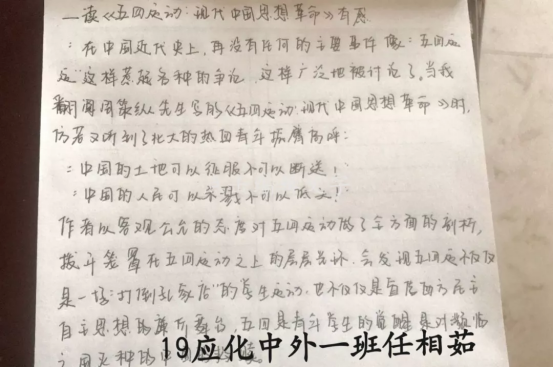 —读《五四运动:现代中国思想革命》有感
:在中国近代史上,再没有任何的主要事件像:五四运
运"这样惹起各种的争论,这样广泛地被讨论了。当我
翻阅周策纵先生写的《五四运动:现代中国思想革命》时,
仿若又听到了北大的热血青年振臂高呼:
:中国的土地可以征服不可以断送!
:中国的人民可以杀戮不可以低头!
作者以客观公允的态度对五四运动做了全方面的剖析,
拨开笼罩在五四运动之上的层层 会发现五四运不仅仅
是一场:打倒孔家店"的学生运动,也不仅仅是 西方民主
自主思想的 舞台,五四是青年学生的觉醒是对
亡国灭种的中
19应化中外一班任相茹